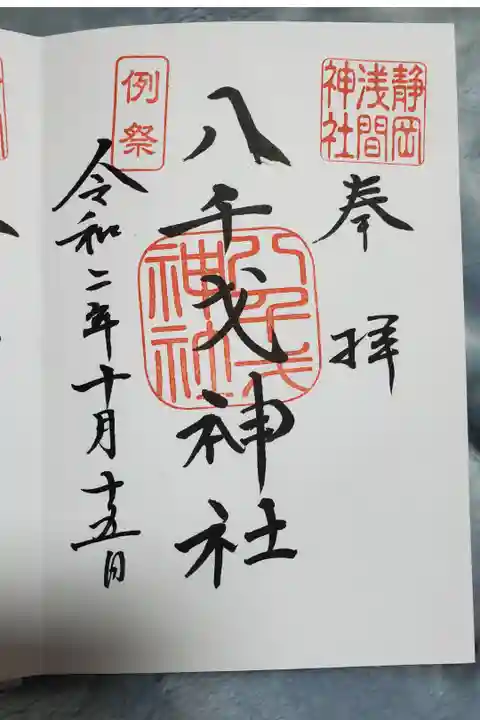 静岡
浅間
神社
奉拝
八千戈神社
八千戈
神社
例祭
令和二年十月十五日